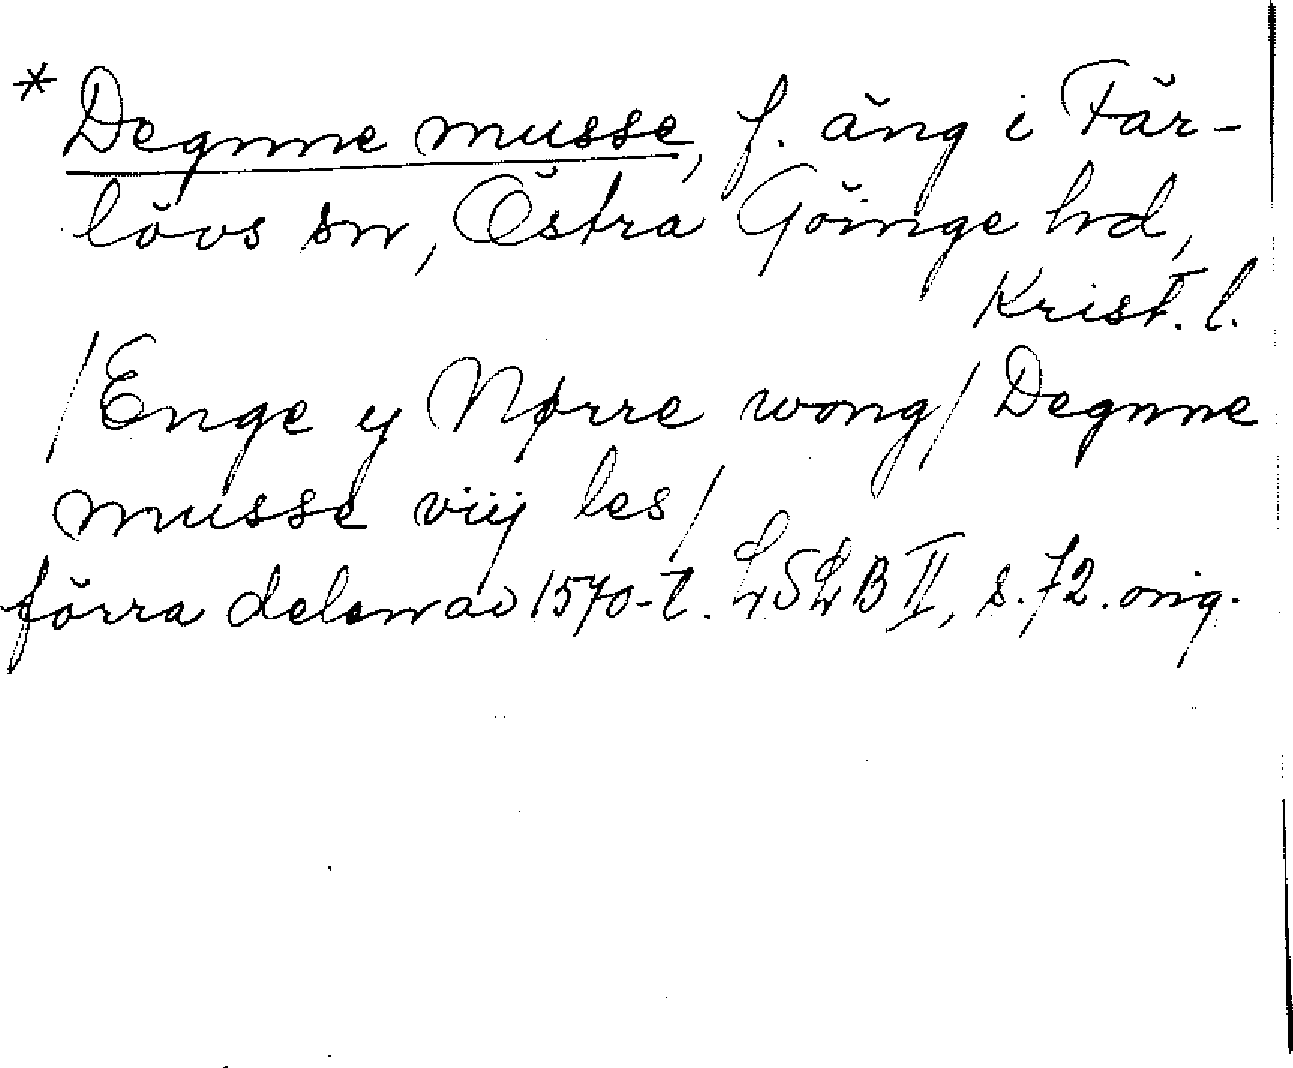 * Degnne musse, f. äng i Fär-
lövs sn, Östra Göinge hd,
Krist. l.
/Enge y Nørre wong/ Degnne
musse viij les/
förra delen av 1570-t. LSLB II, s. 72. orig.